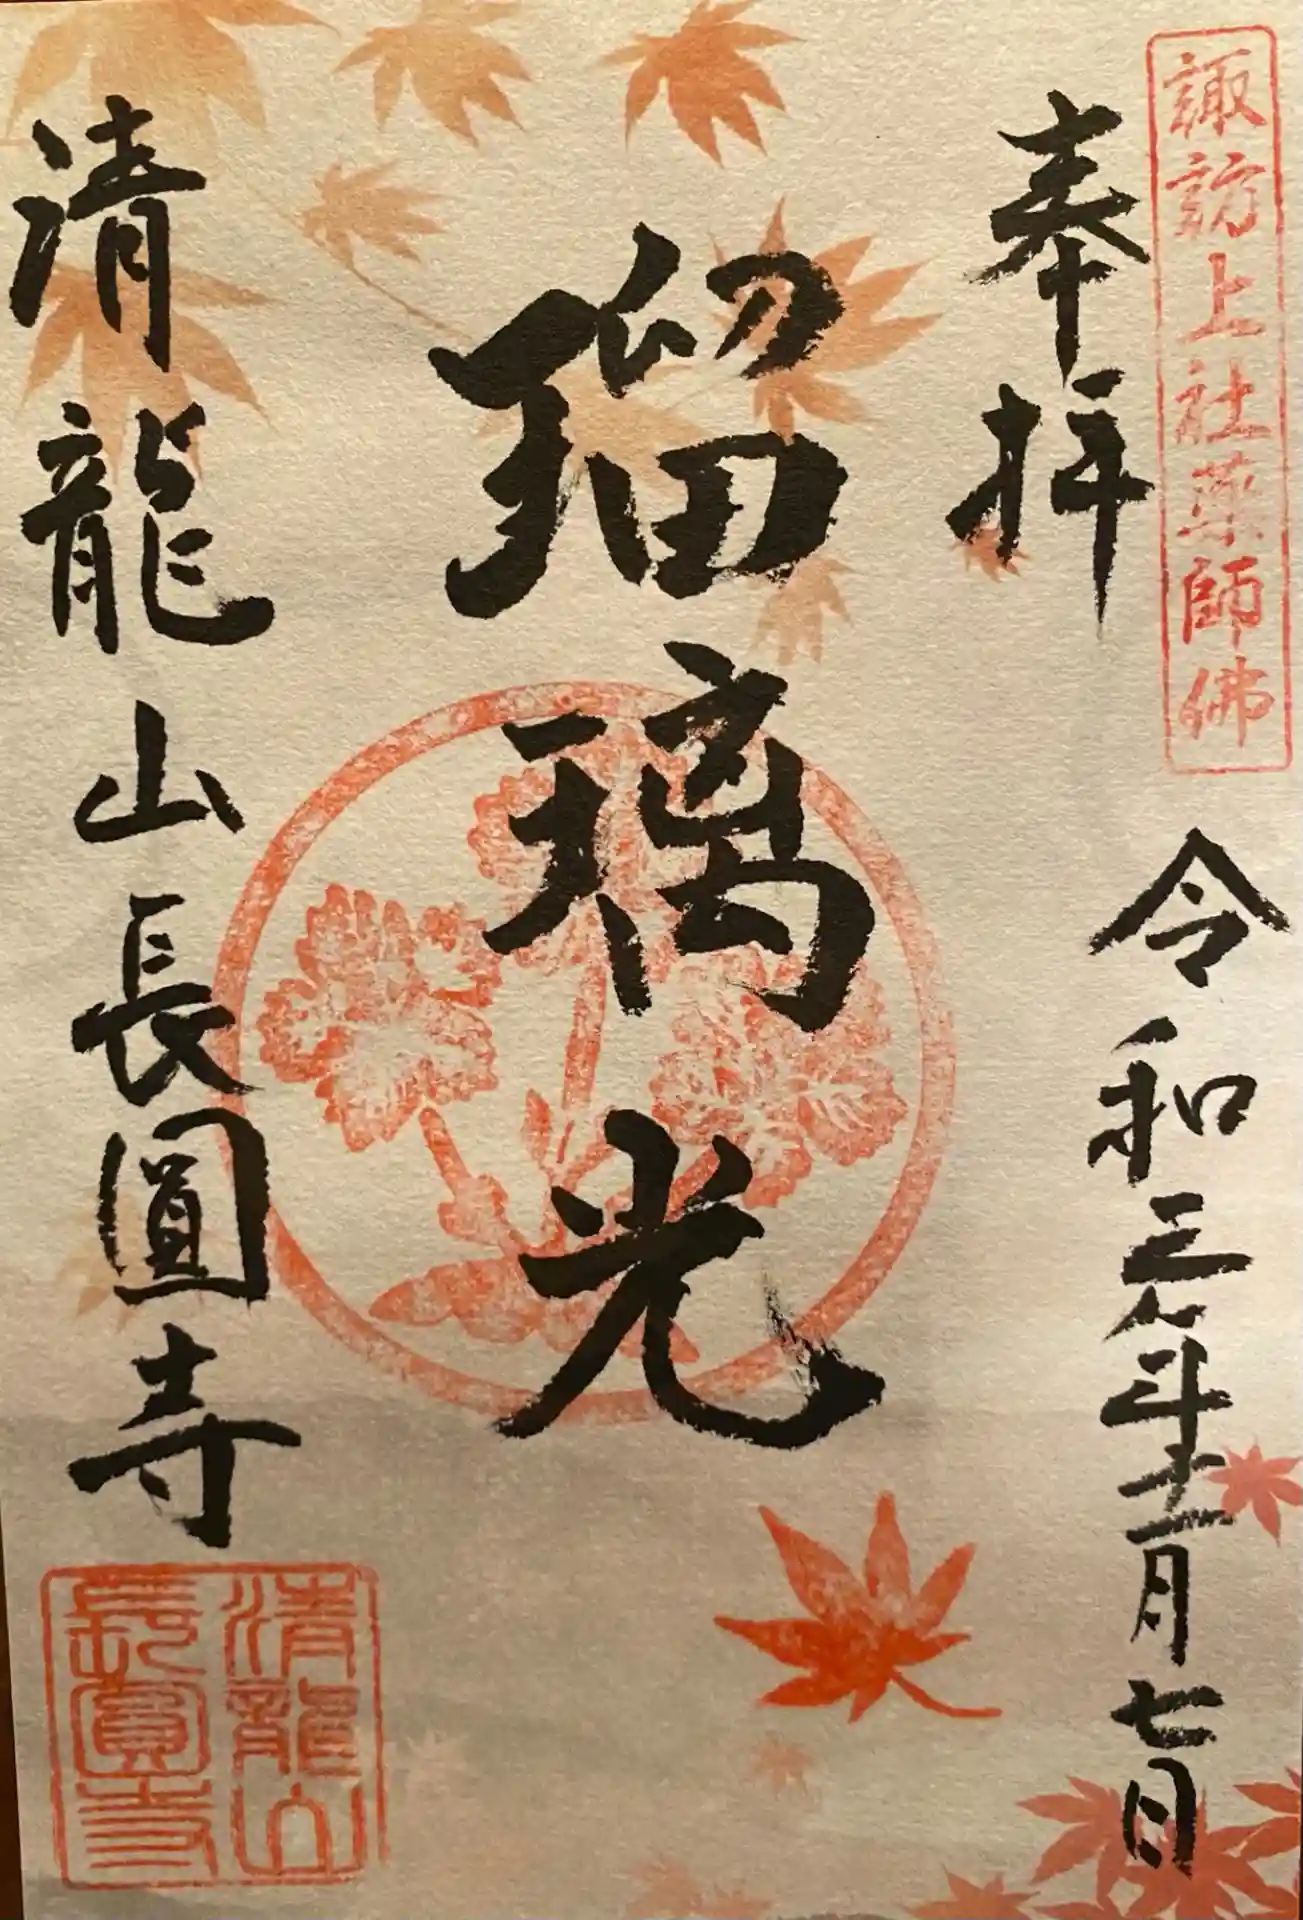 諏訪上社薬師佛
奉拝
令和三年十一月七日
瑠璃光
清龍山長圓寺
清龍山
長圓寺